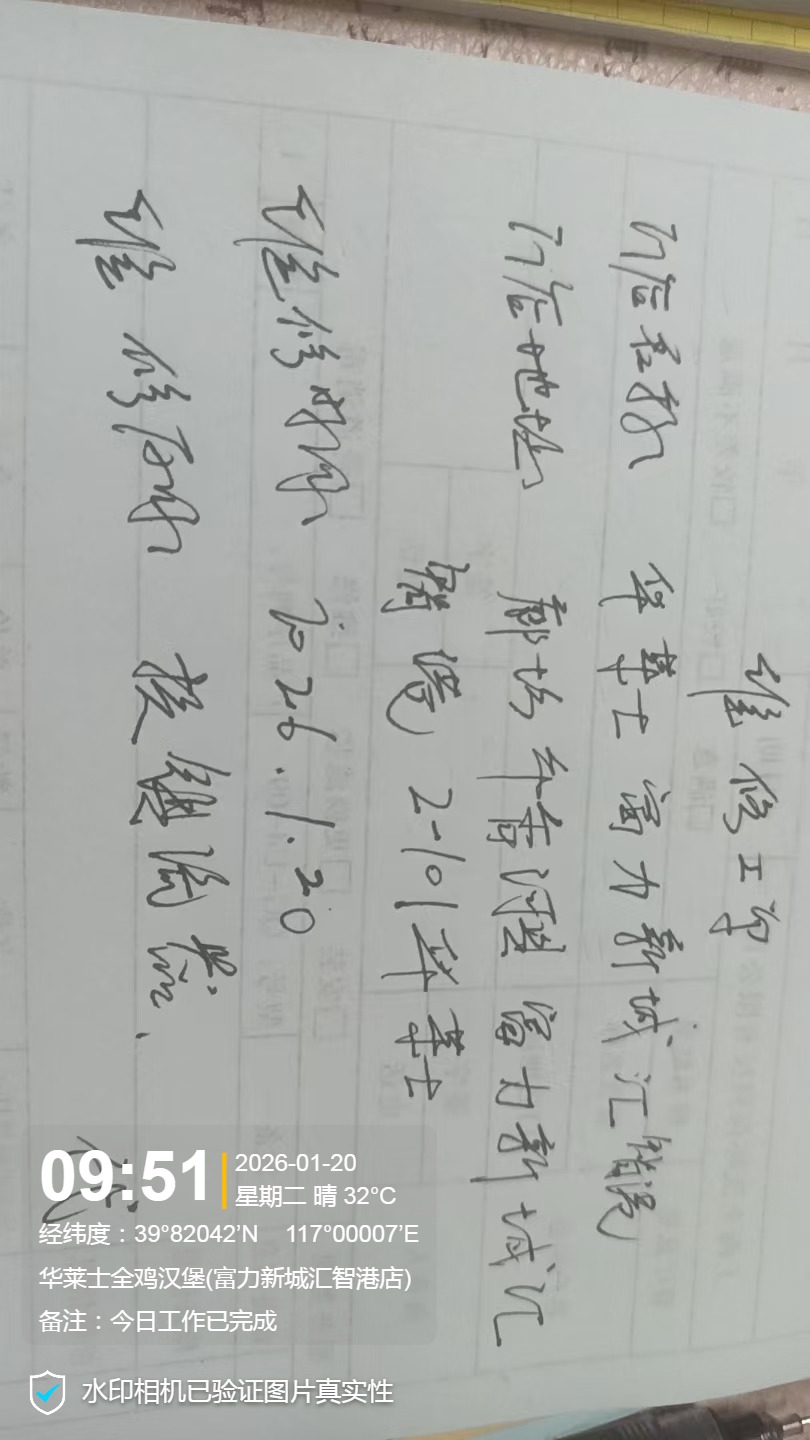 维修工单
门店名称 华莱士富力新城汇智港
门店地址 廊坊市香河县富力新城汇
智港2-101华莱士
维修时间 2026.1.20
维修后
09:51
2026-01-20
星期二 晴 32°C
经纬度：39°82042'N 117°00007'E
华莱士全鸡汉堡(富力新城汇智港店)
备注：今日工作已完成
水印相机已验证图片真实性